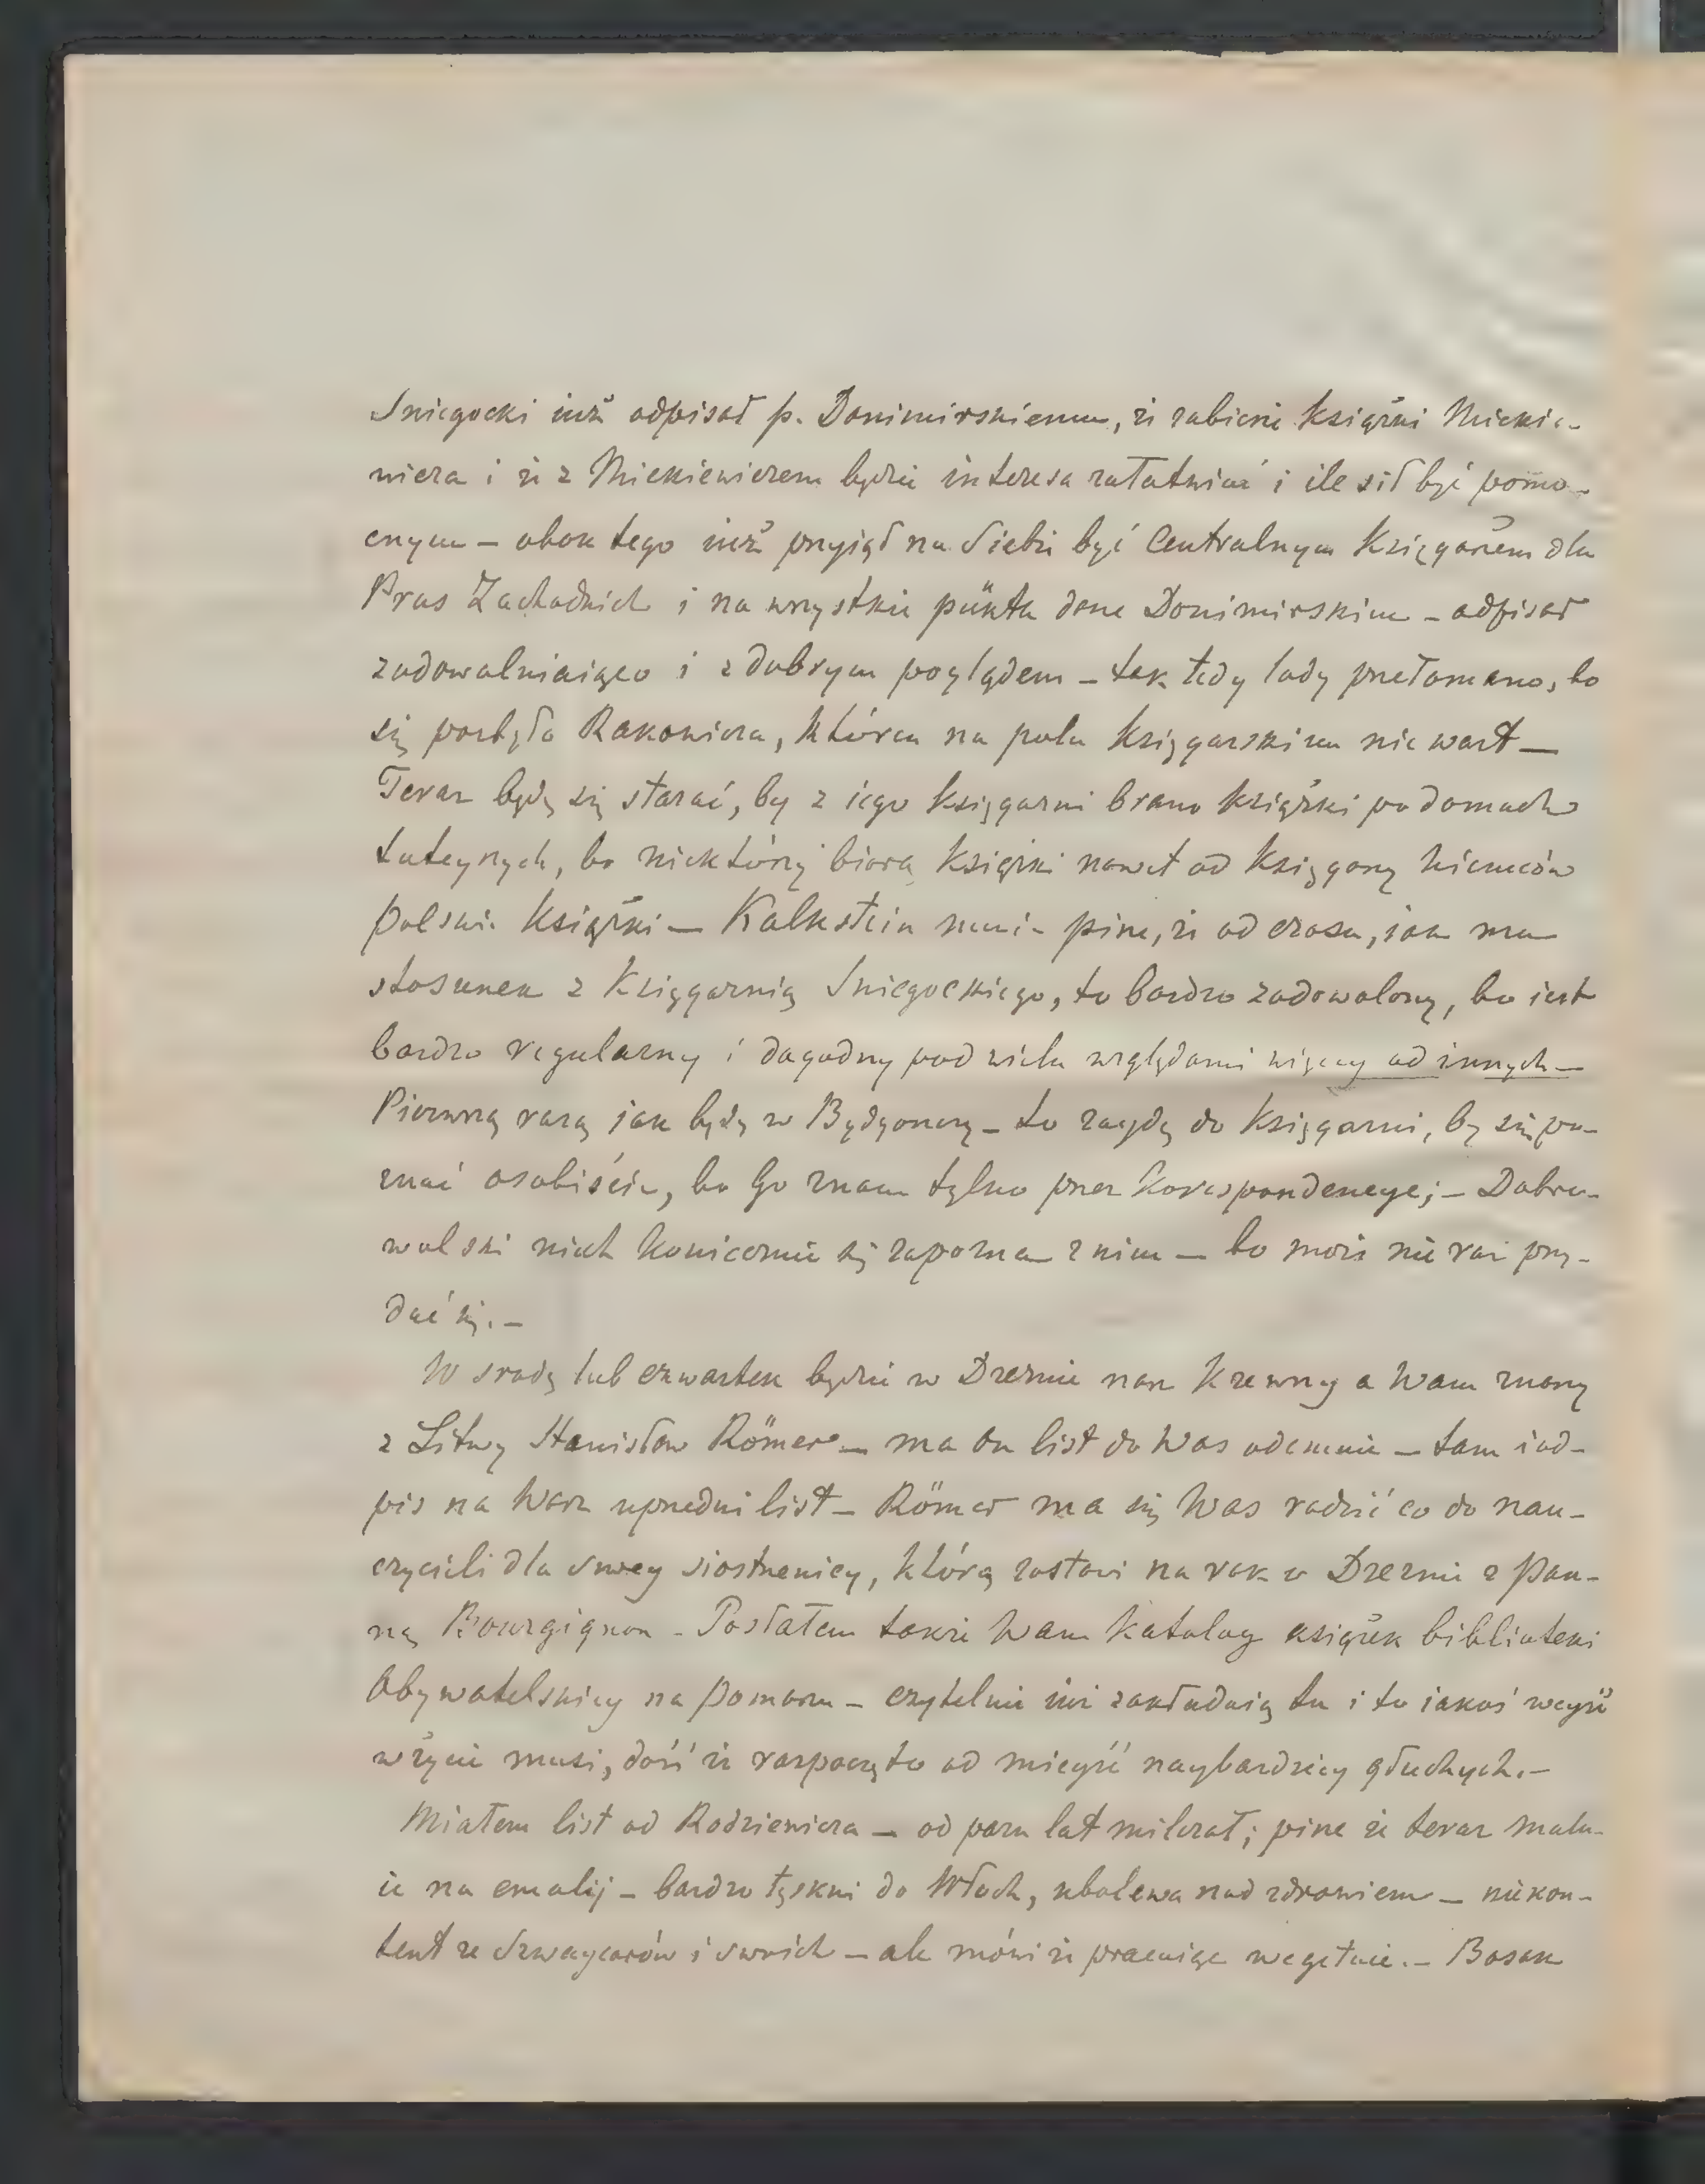 Sniegocki iuż odpisał p. Donimirskiemu, że zabierze książki Mickie-
wicza i że z Mickiewiczem będzie interesa załatwiać i ile sił być pomo-
cnym — obok tego iuż przyiął na Siebie być Centralnym Księgarzem dla
Prus Zachodnich i na wszystkie punkta dane Donimirskim — odpisał
zadowalniaiąco i z dobrym poglądem — tak tedy lody przełamano, bo
się pozbyło Rakowicza, który na polu księgarskiem nic wart —
Teraz będę się starać, by z iego księgarni brano książki po domach
tuteyszych, bo niektórzy biorą książki nawet od księgarzy niemców
polskie książki — Kalkstein mnie pisze, że od czasu, iak ma
stosunek z Księgarnią Sniegockiego, to bardzo zadowolony, bo iest
bardzo regularny i dogodny pod wielu względami więcey od innych —
Pierwszą razą jak będę w Bydgoszczy — to zaydę do księgarni, by się po-
znać osobiście, bo Go znam tylko przez korespondencye; — Dobro-
wolski niech koniecznie się zapozna z nim — bo może nie raz przy-
dać się. —
W srodę lub czwartek będzie w Dreznie nasz krewny a Wam znany
z Litwy Stanisław Römer — ma On list do Was odemnie — tam i od-
pis na Wasz uprzedni list — Römer ma się Was radzić co do nau-
czycieli dla swey siostrzenicy, którą zostawi na rok w Dreznie z pan-
ną Bourgignon — Posłałem także Wam katalog książek biblioteki
Obywatelskiey na Pomorzu — czytelnie iuż zakładaią tu i to iakoś weyść
w życie musi, dość że rozpoczęto od mieysć naybardziey głuchych. —
Miałem list od Rodziewicza — od paru lat milczał; pisze że teraz malu-
ie na emalij — bardzo tęskni do Włoch, ubolewa nad zdrowiem — niekon-
tent ze Szwaycarów i swoich — ale mówi że pracuiąc wegetuie. — Bosak